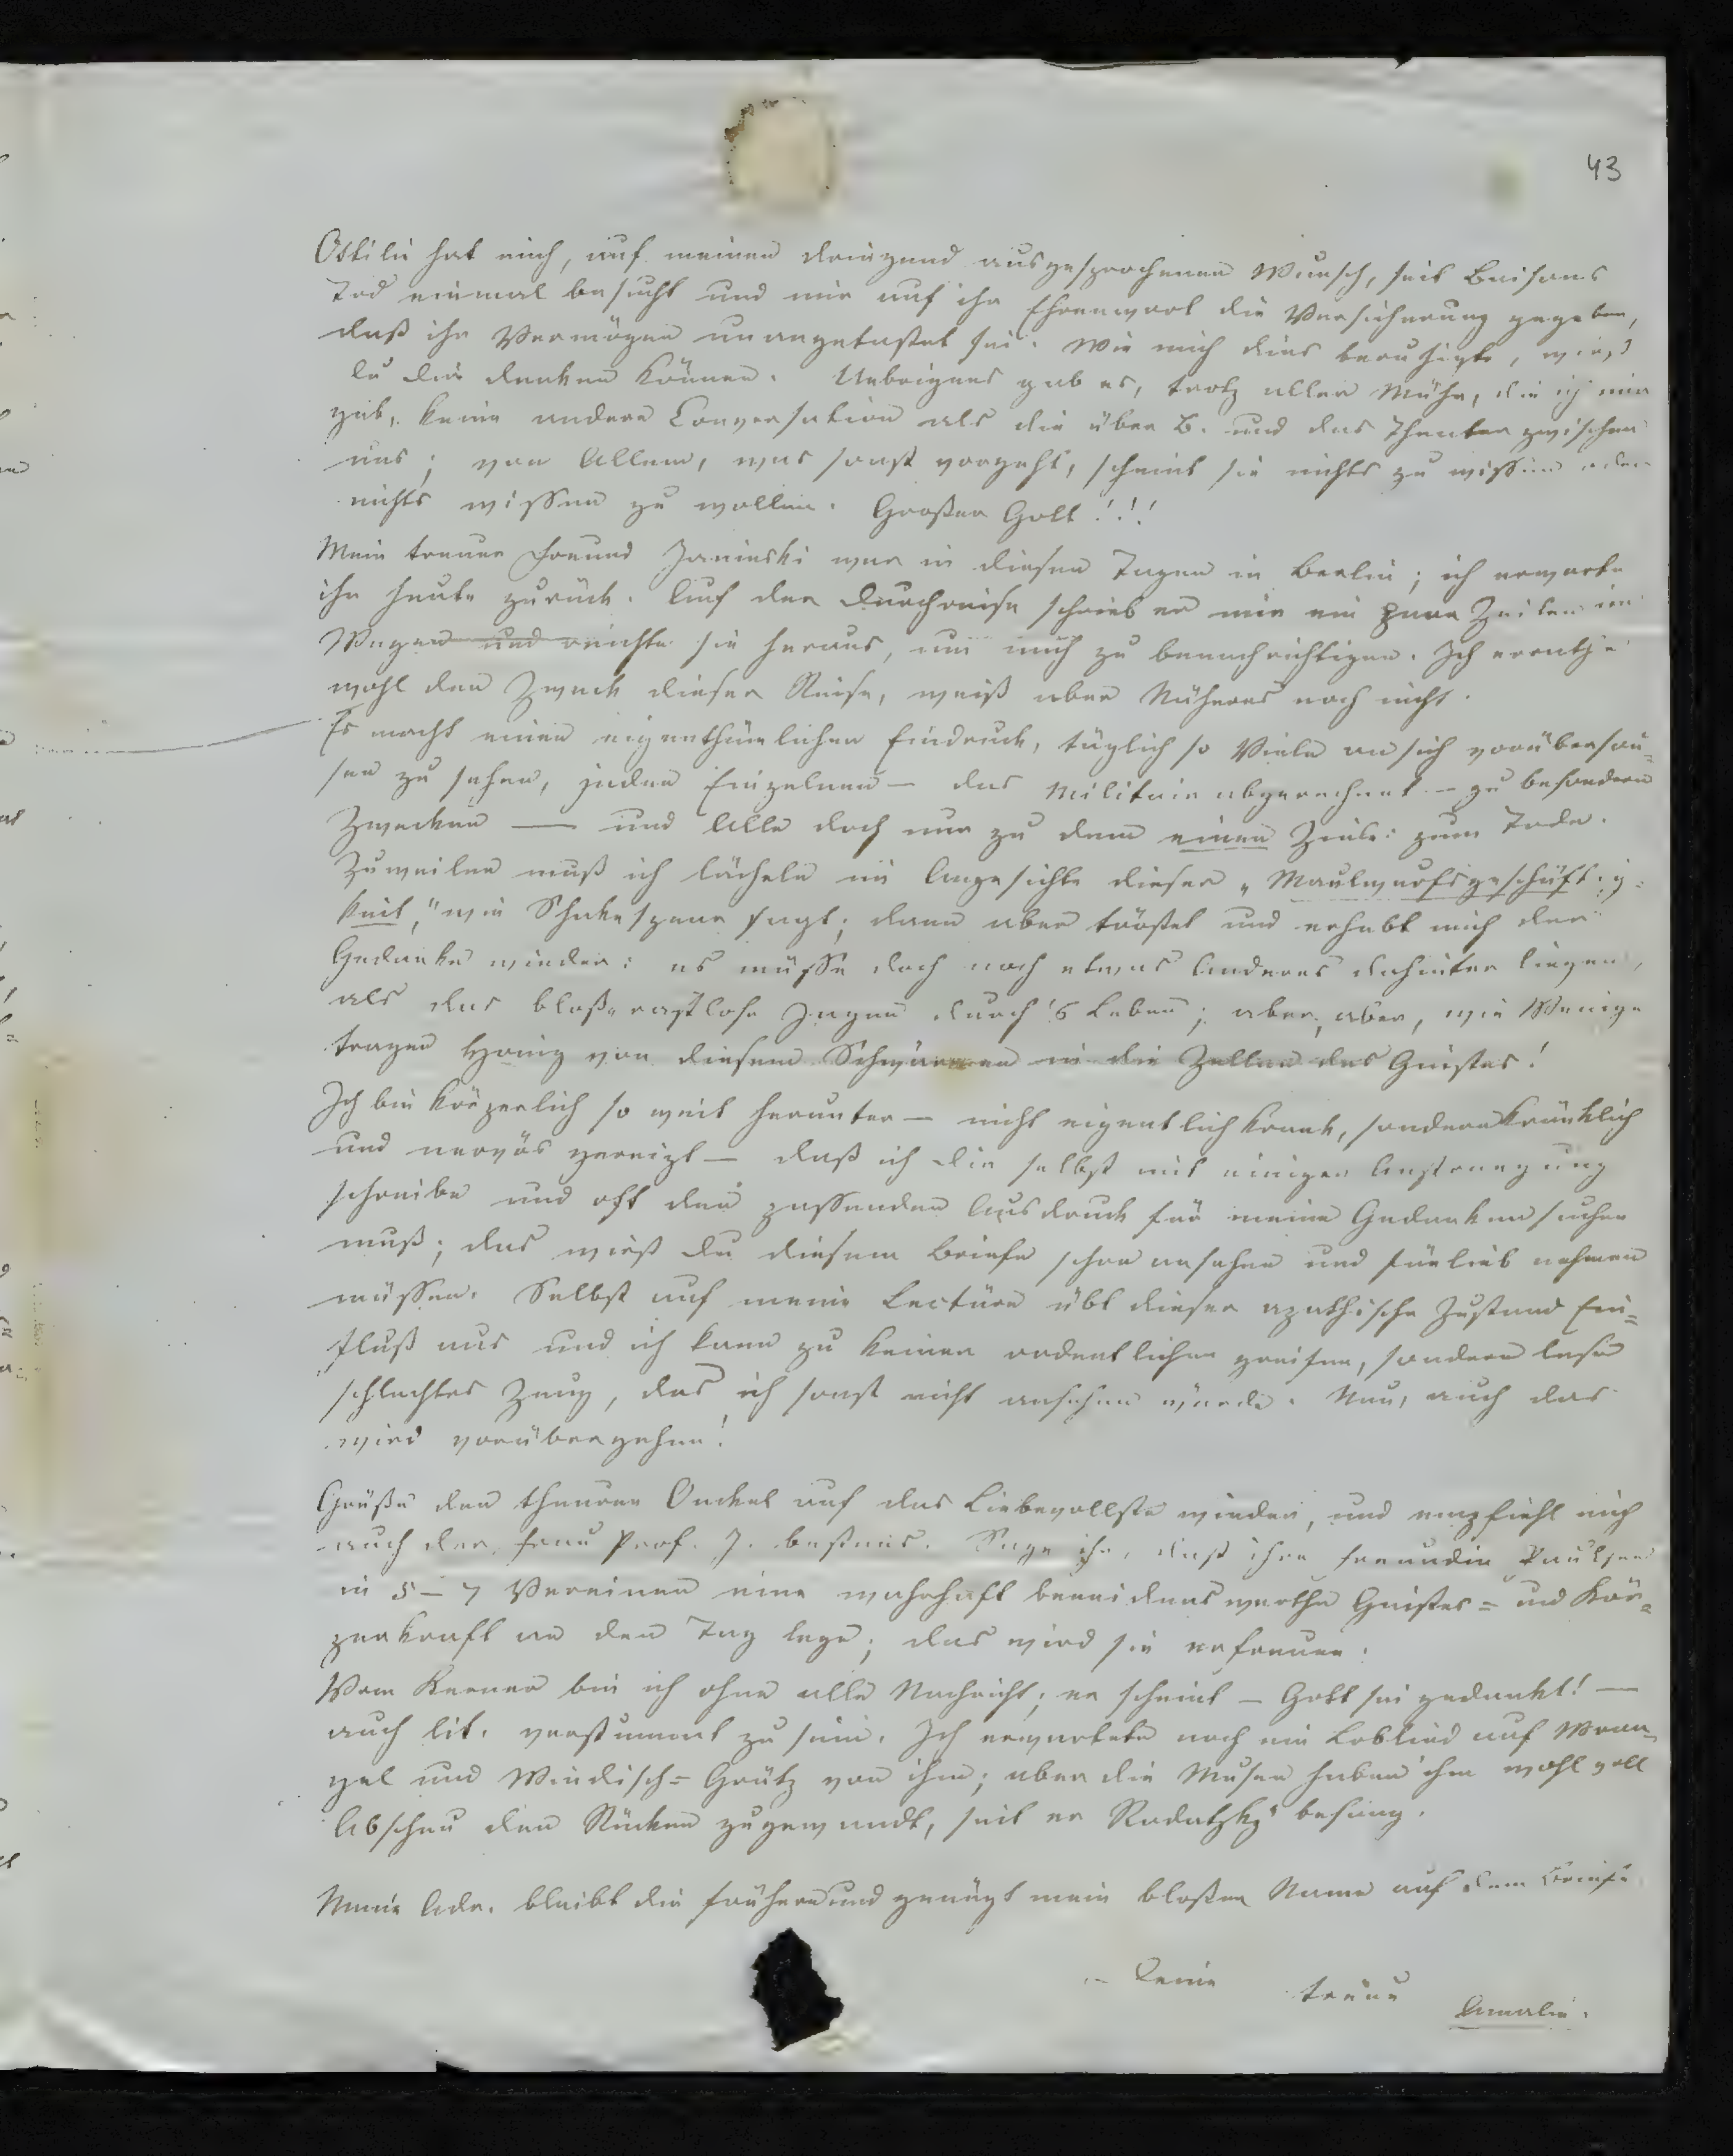 43
Ottilie hat mich, auf meinen dringend ausgesprochenen Wunsch, seit Baisons
Tod einmal besucht und mir auf ihr Ehrenwort die Versicherung gegeben,
daß ihr Vermögen unangetastet sei. Wie mich dies beruhigte, wirst
Du Dir denken können. Uebrigens gab es, trotz aller Mühe, die ich mir
gab, keine andere Conversation als die über B. und das Theater zwischen
uns; von Allem, was sonst vorgeht, scheint sie nichts zu wissen oder
nichts wissen zu wollen. Großer Gott!!!
Mein treuer Freund Janinski war in diesen Tagen in Berlin; ich erwarte
ihn heute zurück. Auf der Durchreise schrieb er mir ein paar Zeilen im
Wagen und reichte sie heraus, um mich zu benachrichtigen. Ich errathe
wohl den Zweck dieser Reise, weiß aber Näheres noch nicht.
Es macht einen eigenthümlichen Eindruck, täglich so Viele an sich vorübersau-
sen zu sehen, jeden Einzelnen – das Militair abgerechnet – zu besondern
Zwecken — und Alle doch nur zu dem einen Ziele: zum Tode.
Zuweilen muß ich lächeln im Angesichte dieser „Maulwurfsgeschäftig-
keit," wie Shakespear sagt; dann aber tröstet und erhebt mich der
Gedanke wieder: es müsse doch noch etwas Anderes dahinter liegen,
als das bloße rastlose Jagen durch's Leben; aber, aber, wie Wenige
tragen Honig von diesem Schwärmen in die Zellen des Geistes!
Ich bin körperlich so weit herunter – nicht eigentlich krank, sondern kränklich
und nervös gereizt – daß ich Dir selbst mit einiger Anstrengung
schreibe und oft den passenden Ausdruck für meine Gedanken suchen
muß; das wirst Du diesem Briefe schon ansehen und fürlieb nehmen
müssen. Selbst auf meine Lectüre übt dieser apathische Zustand Ein-
fluß aus und ich kann zu keiner ordentlichen greifen, sondern lese
schlechtes Zeug, das ich sonst nicht ansehen würde. Nun, auch das
wird vorübergehen!
Grüße den theuren Onckel auf das Liebevollste wieder, und empfiehl mich
auch der Frau Prof. J. bestens. Sage ihr, daß ihre Freundin Paulsen
in 5–7 Vereinen eine wahrhaft beneidenswerthe Geistes- und Kör-
perkraft an den Tag lege; das wird sie erfreuen.
Von Kerner bin ich ohne alle Nachricht; er scheint – Gott sei gedankt! —
auch lit. verstummt zu sein. Ich erwartete noch ein Loblied auf Wran-
gel und Windisch-Grätz von ihm; aber die Musen haben ihm wohl voll
Abscheu den Rücken zugewandt, seit er Radetzky besang.
Meine Adr. bleibt die frühere und genügt mein bloßer Name auf dem Briefe
Deine treue Amalie.